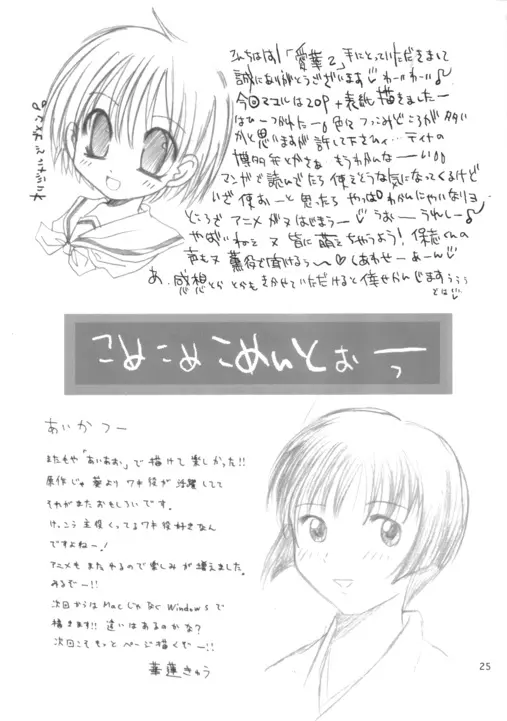 こんちはっ!「愛華2」手にとっていただきまして
誠にありがとうございます わーいわーい♪
今回マコルは20P+表紙描きましたー
はひーつかれたー 色々つっこみどころが多い
かと思いますが許して下さひィ…ティナの
博多弁とかさぁ もうわかんなーい
マンガで読んでたら使えそうな気になってくるけど
いざ使おーと思ったらやっぱわかんにゃいなりヨ
ところでアニメがヌはじまるー うおーうれしー♪
やばいねェ ヌ 皆に萌えちゃうよう! 保志くんの
声もヌ 薫役で聞けるぅ〜 しあわせーあーん
あ、感想とかとかもきかせていただけると倖せかんじますぅぅぅ
こめこめこめんとぉーっ
あいかつー
またもや「あいあお」で描けて楽しかった!!
原作じゃ葵よりワキ役が活躍してて
それがまたおもしろいです。
けっこう主役くってるワキ役好きなん
ですよねー!
アニメもまたやるので楽しみが増えました。
みるぞー!!
次回からはMacじゃなくWindowsで
描きます!! 違いはあるのかな?
次回こそもっとページ描くぞー!!
華蓮きゅう
25